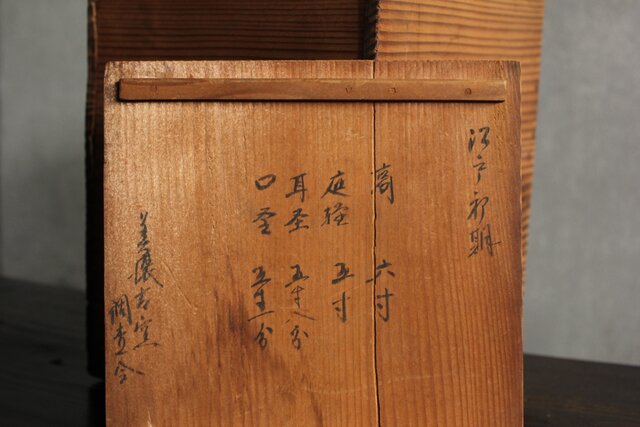 江戸初期
高 六寸
底径 五寸
耳径 五寸八分
口径 五寸一分
美濃古窯
調査会